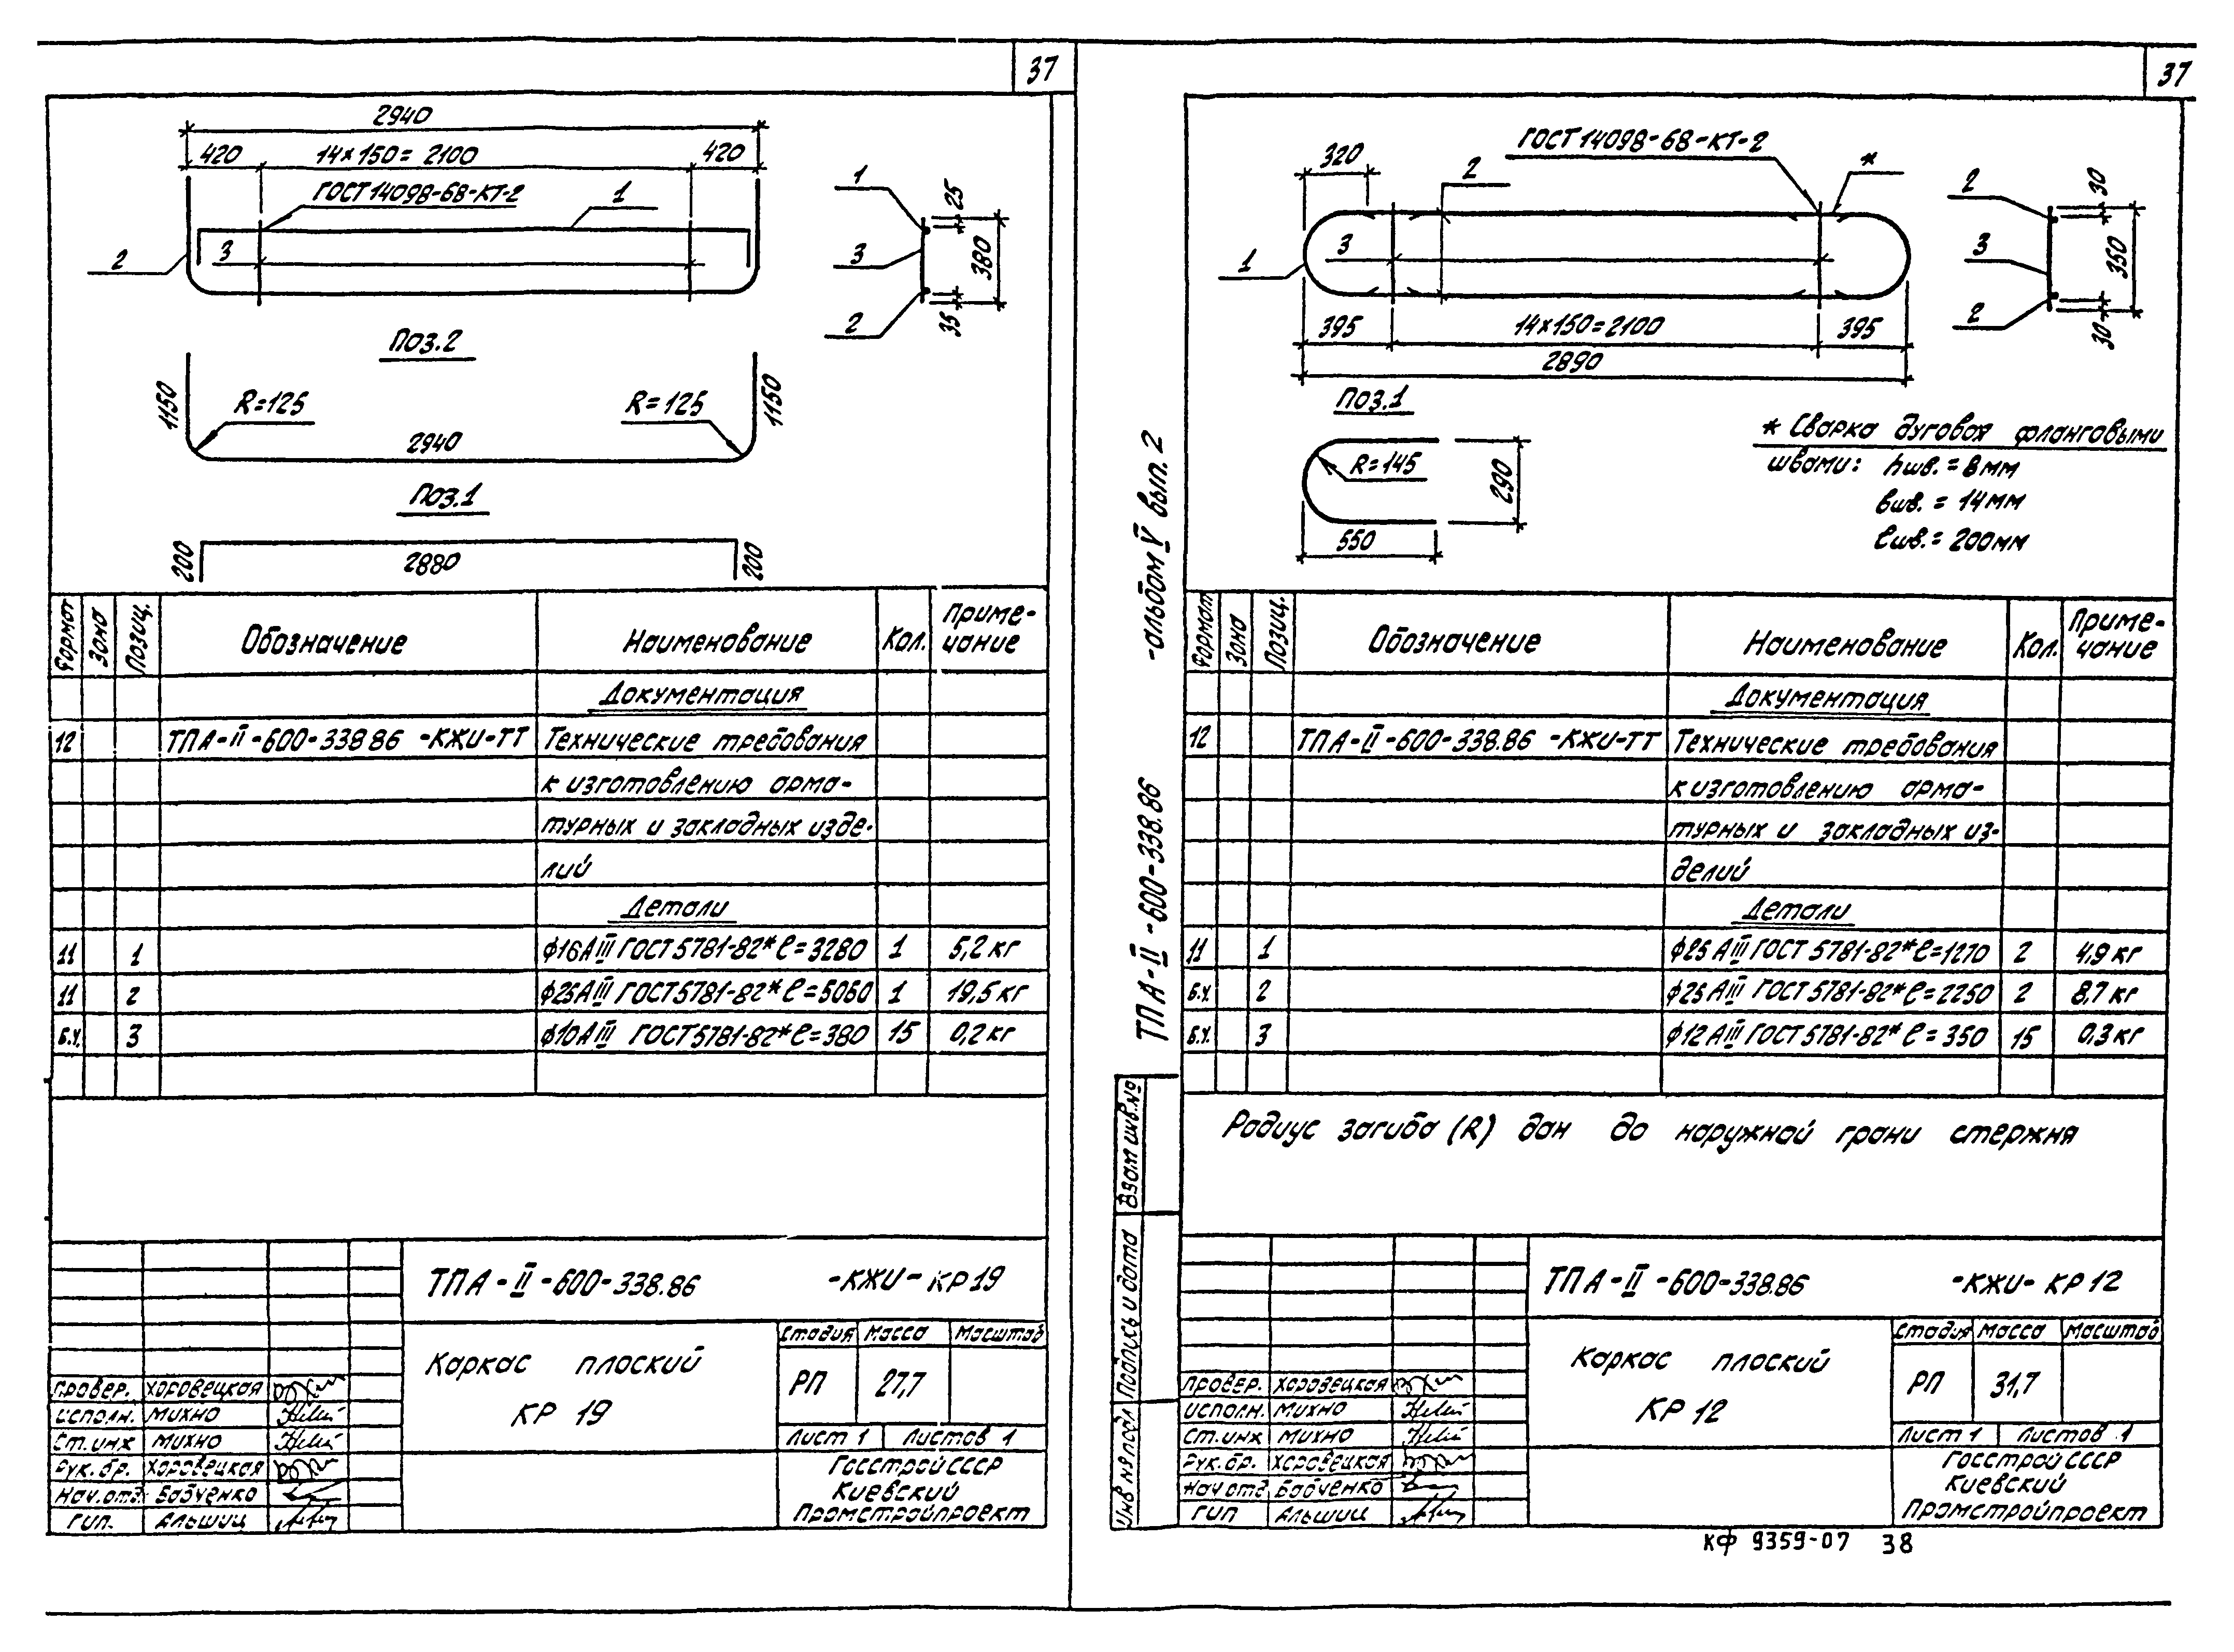 37
2940
420 14×150=2100 420
ГОСТ14098-68-КТ-2
1
2
3
1
3
2
25
380
35
Поз.2
1150
R=125
R=125
1150
2940
Поз.1
200
2880
200
Формат Зона Позиц. Обозначение Наименование Кол. Приме-
чание
Документация
12 ТПА-II-600-338.86 -КЖИ-ТТ Технические требования
к изготовлению арма-
турных и закладных изде-
лий
Детали
11 1 ф16АIII ГОСТ5781-82* ℓ=3280 1 5,2 кг
11 2 ф25АIII ГОСТ5781-82* ℓ=5060 1 19,5 кг
Б.Ч. 3 ф10АIII ГОСТ5781-82* ℓ=380 15 0,2 кг
ТПА-II-600-338.86 -КЖИ- КР19
Каркас плоский
КР 19
Стадия Масса Масштаб
РП 27,7
Лист 1 Листов 1
Госстрой СССР
Киевский
Промстройпроект
Провер. Хоровецкая
Исполн. Михно
Ст.инж Михно
Рук.бр. Хоровецкая
Нач.отд. Бабченко
ГИП. Альшиц
37
ГОСТ14098-68-КТ-2
320
2
*
3
1
395 14×150=2100 395
2890
2
3
2
30
350
30
Поз.1
R=145
290
550
* Сварка дуговая фланговыми
швами: hшв.=8мм
bшв.=14мм
ℓшв.=200мм
ТПА-II-600-338.86 -альбом V вып. 2
Формат Зона Позиц. Обозначение Наименование Кол. Приме-
чание
Документация
12 ТПА-II-600-338.86 -КЖИ-ТТ Технические требования
к изготовлению арма-
турных и закладных из-
делий
Детали
11 1 ф25 АIII ГОСТ 5781-82* ℓ=1270 2 4,9 кг
Б.Ч. 2 ф25 АIII ГОСТ 5781-82* ℓ=2250 2 8,7 кг
Б.Ч. 3 ф12 АIII ГОСТ 5781-82* ℓ=350 15 0,3 кг
Радиус загиба (R) дан до наружной грани стержня
Взам инв.№
Подпись и дата
Инв № подл
ТПА-II-600-338.86 -КЖИ- КР 12
Каркас плоский
КР 12
Стадия Масса Масштаб
РП 31,7
Лист 1 Листов 1
Госстрой СССР
Киевский
Промстройпроект
Провер. Хоровецкая
Исполн. Михно
Ст.инж Михно
Рук.бр. Хоровецкая
Нач отд Бабченко
ГИП Альшиц
КФ 9359-07 38